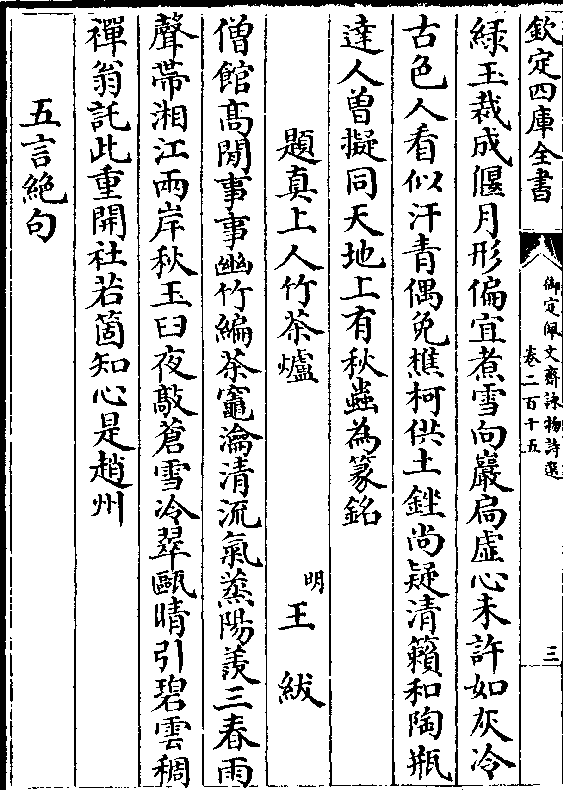 欽定四庫全書
御定佩文齋詠物詩選
卷二百十五
三
綠玉裁成偃月形偏宜煮雪向巖扃虛心未許如灰冷
古色人看似汗青偶免樵柯供土銼尚疑清籟和陶瓶
達人曾擬同天地上有秋蟲為篆銘
題真上人竹茶爐
明王紱
僧館高閒事事幽竹編茶竈瀹清流氣蒸陽羨三春雨
聲帶湘江兩岸秋玉臼夜敲蒼雪冷翠甌晴引碧雲稠
禪翁託此重開社若箇知心是趙州
五言絶句